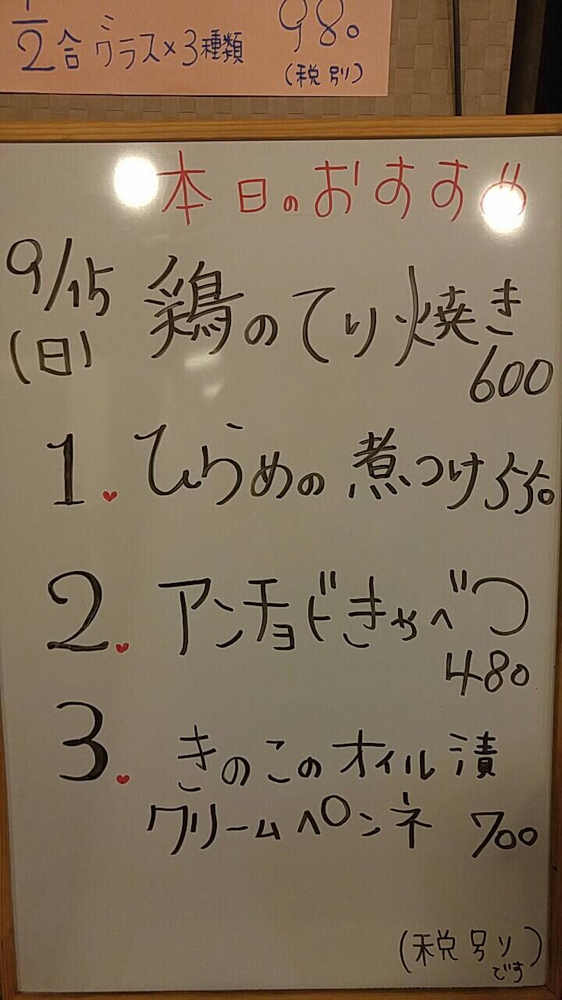 1/2合グラス×3種類 980
(税別)
本日のおすすめ
9/15
(日)
鶏のてり焼き
600
1. ひらめの煮つけ 550
2. アンチョビきゃべつ
480
3. きのこのオイル漬
クリームペンネ 700
(税別り
です)